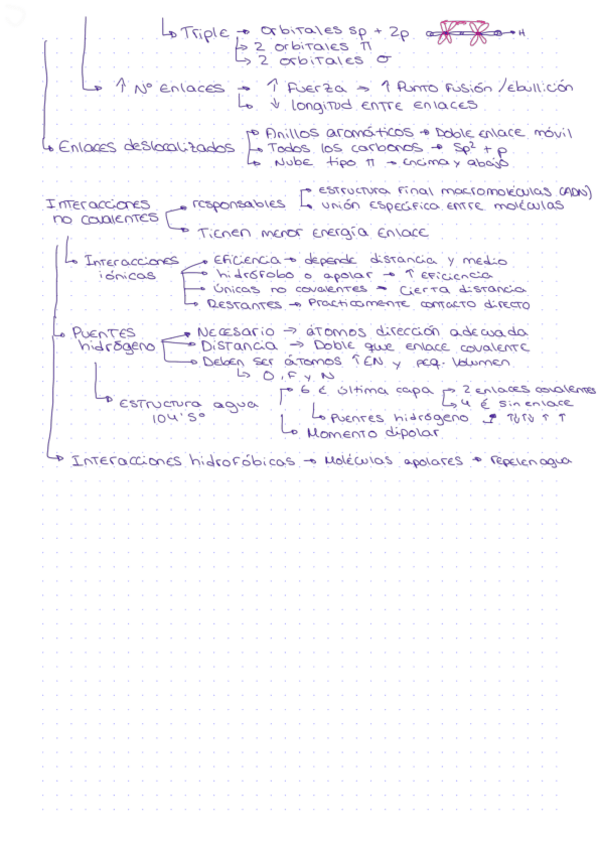 Triple → orbitales sp + 2p H
2 orbitales π
2 orbitales σ
↑ Nº Enlaces → ↑ Fuerza → ↑ Punto Fusión / ebullición
↓ longitud entre enlaces
Enlaces deslocalizados
Anillos aromáticos → Doble enlace móvil
Todos los carbonos → sp² + p
Nube tipo π → encima y abajo
Interacciones no covalentes
responsables
estructura final macromoléculas (ADN)
unión específica entre moléculas
Tienen menor energía enlace
Interacciones iónicas
Eficiencia → depende distancia y medio
hidrófobo o apolar → ↑ eficiencia
únicas no covalentes → cierta distancia
Restantes → Practicamente contacto directo
Puentes hidrógeno
Necesario → átomos dirección adecuada
Distancia → Doble que enlace covalente
Deben ser átomos ↑EN y peq. volumen
O, F y N
Estructura agua
104'5º
6 é última capa
2 enlaces covalentes
4 é sin enlace
Puentes hidrógeno → ↑↓ ↑↓ ↑ ↑
Momento dipolar
Interacciones hidrofóbicas → Moléculas apolares → repelen agua